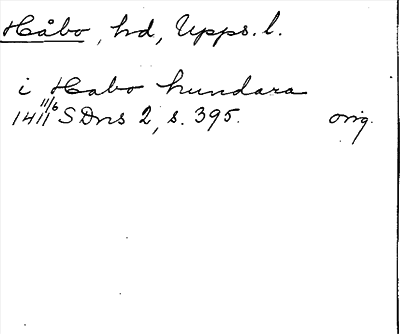 Håbo, hd, Upps. l.
i Habo hundara
1411 11/6 SDns 2, s. 395. orig.